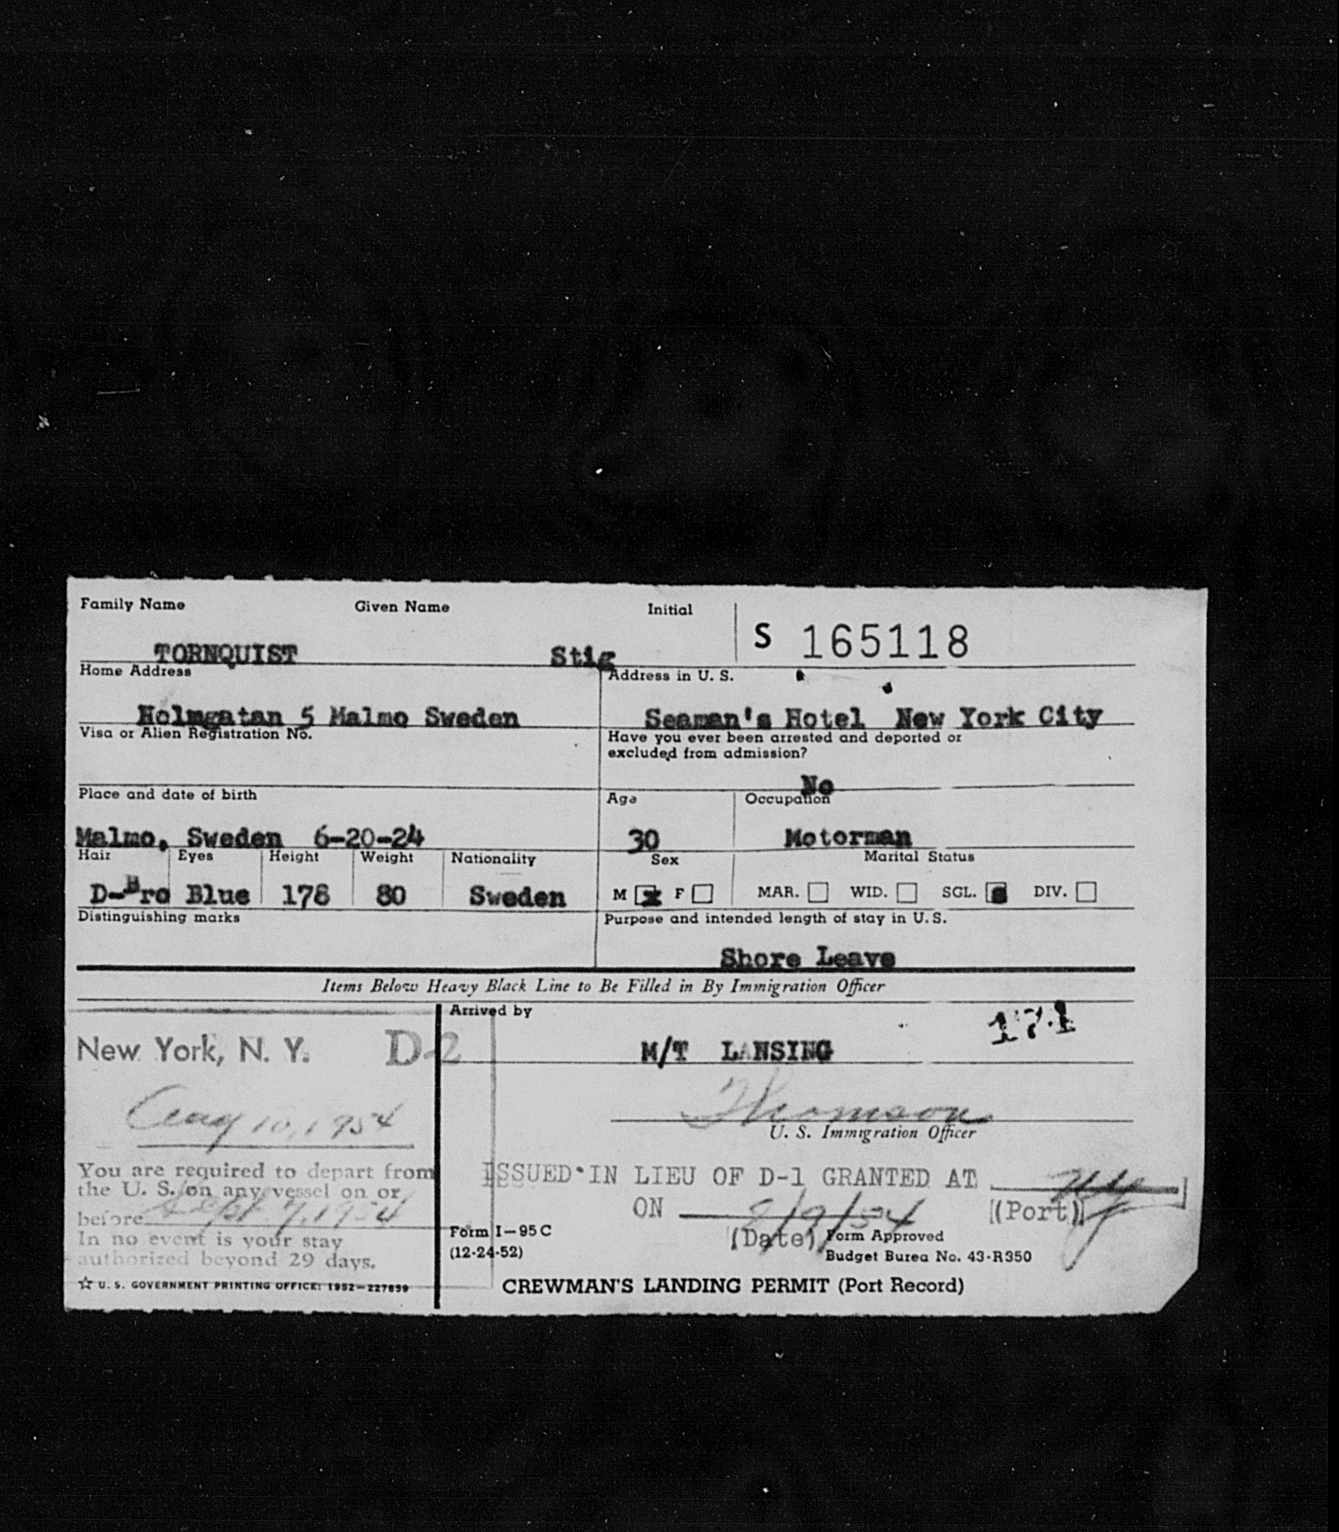 Family Name Given Name Initial
S 165118
TORNQUIST Stig
Home Address Address in U. S.
Holmgatan 5 Malmo Sweden Seaman's Hotel New York City
Visa or Alien Registration No. Have you ever been arrested and deported or
excluded from admission?
No
Place and date of birth Age Occupation
Malmo, Sweden 6-20-24 30 Motorman
Hair Eyes Height Weight Nationality Sex Marital Status
D-Bro Blue 178 80 Sweden M x F MAR. WID. SGL. DIV.
Distinguishing marks Purpose and intended length of stay in U. S.
Shore Leave
Items Below Heavy Black Line to Be Filled in By Immigration Officer
Arrived by
171
New York, N. Y. D-2 M/T LANSING
Aug 10, 1954 Thomson
U. S. Immigration Officer
You are required to depart from
the U. S. on any vessel on or
before Sept 7, 1954
In no event is your stay
authorized beyond 29 days.
ISSUED IN LIEU OF D-1 GRANTED AT NY
(Port)
ON 8/9/54
(Date)
Form I-95 C
(12-24-52)
Form Approved
Budget Burea No. 43-R350
☆ U. S. GOVERNMENT PRINTING OFFICE: 1952-227659
CREWMAN'S LANDING PERMIT (Port Record)